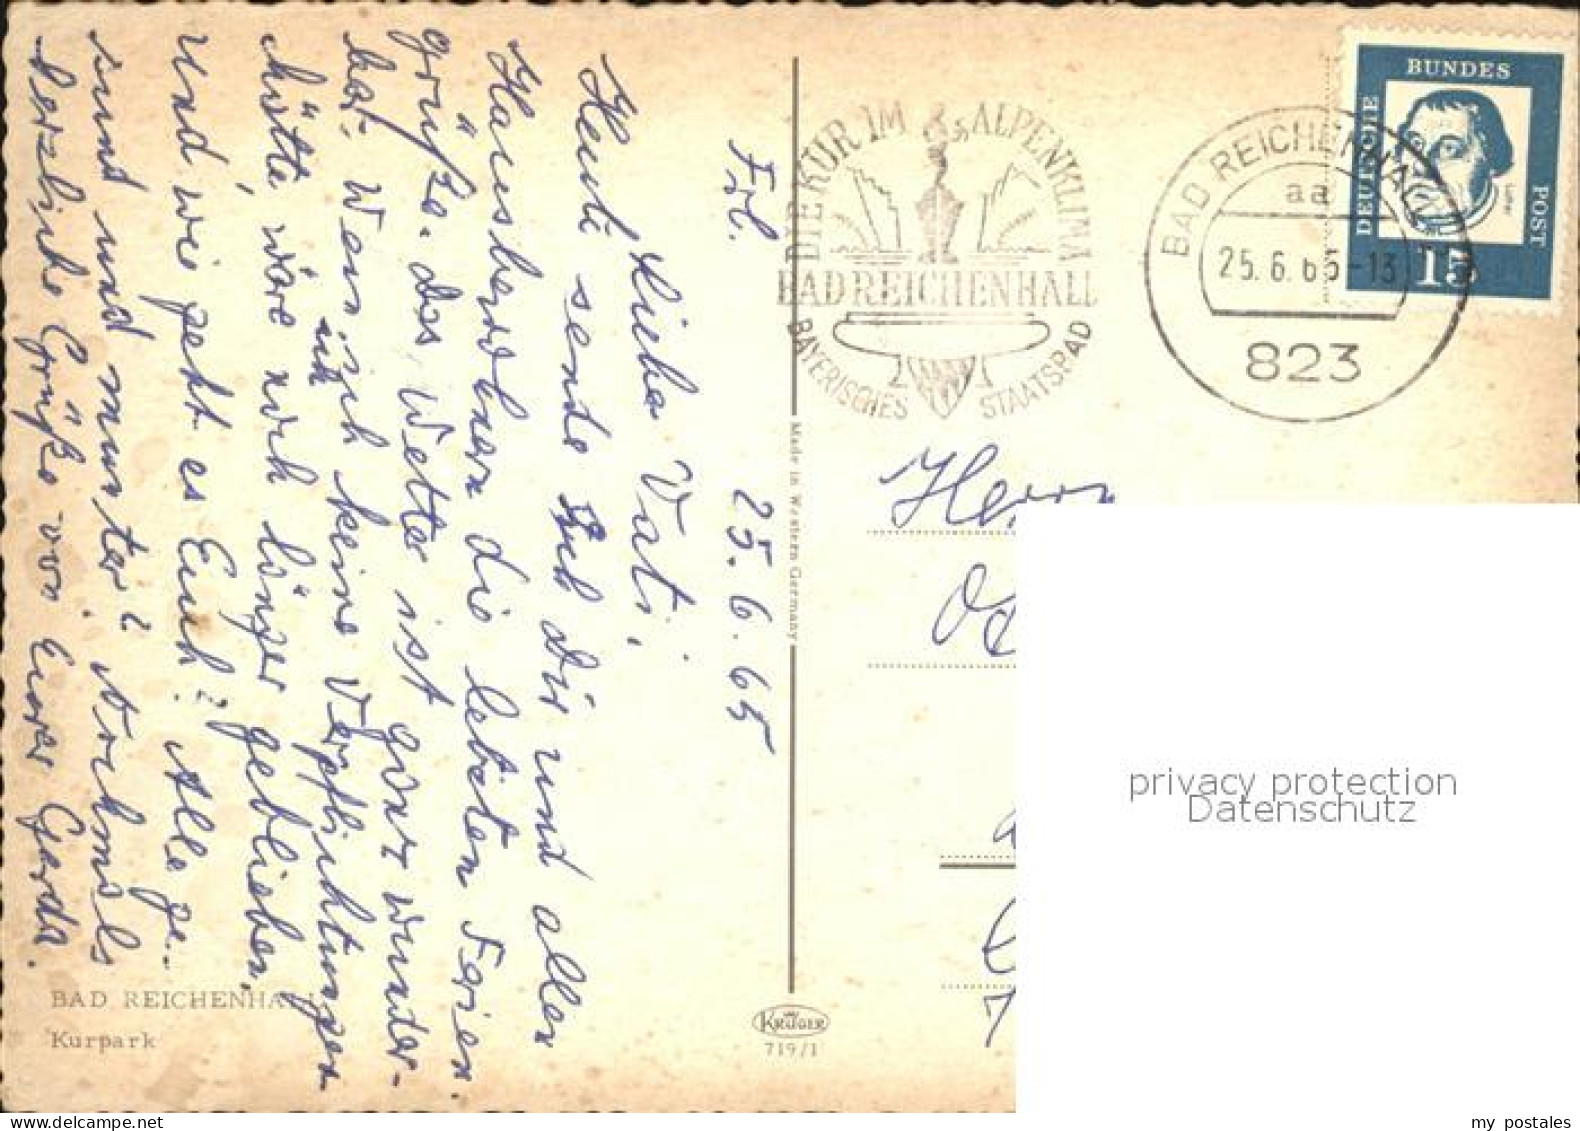 Frl. 25.6.65
Liebe Vati,
Heute sende Euch Dir und allen
Hausbewohnern die letzten Ferien
grüße. Das Wetter ist ganz wunder-
bar. Wenn ich keine Verpflichtungen
hätte, wäre ich noch länger geblieben.
Und wie geht es Euch? Alle ge-
sund und munter? Nochmals
herzliche Grüße von Eurer Gerda.
BAD REICHENHALL
Kurpark
Made in Western Germany
KRÜGER
719/1
DIE KUR IM ALPENKLIMA
BAD REICHENHALL
BAYERISCHES STAATSBAD
BAD REICHENHALL
aa
25.6.65-13
823
DEUTSCHE BUNDES POST
15
Herrn
privacy protection
Datenschutz
my postales